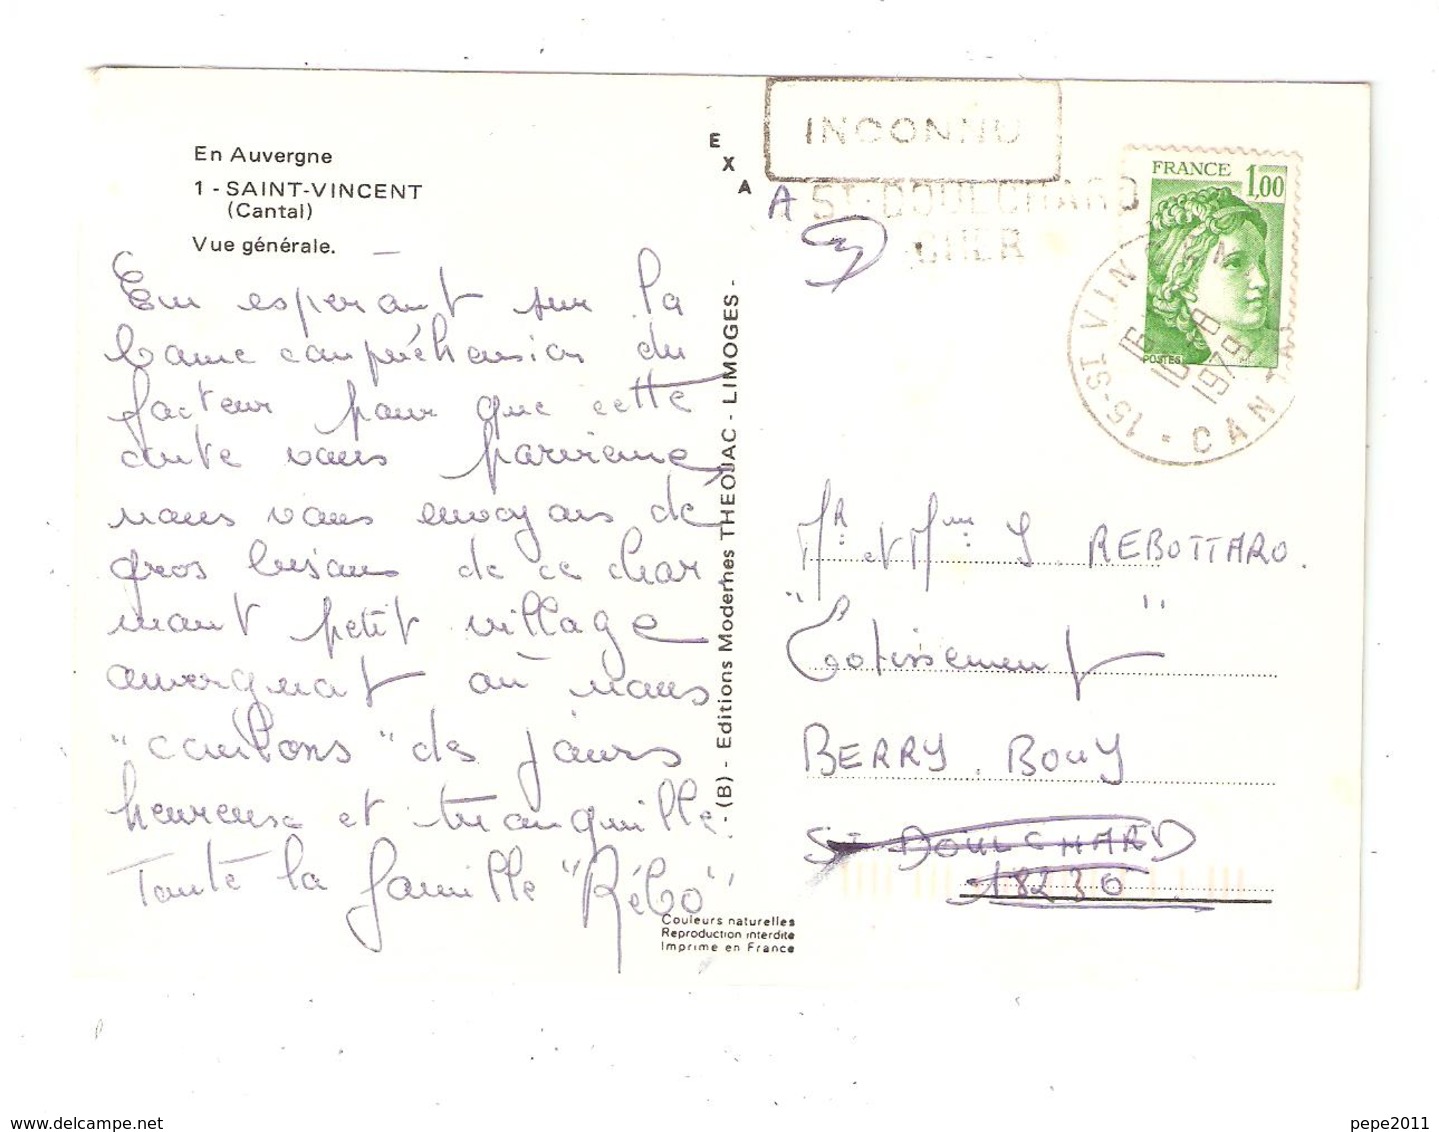 En Auvergne
1 - SAINT-VINCENT
(Cantal)
Vue générale.
En espérant sur la
bonne compréhension du
facteur pour que cette
carte vous parvienne
nous vous envoyons de
gros bisous de ce char
mant petit village
auvergnat où nous
"coulons" des jours
heureux et tranquille.
Toute la famille "Rébo"
E
X
A
- (B) - Editions Modernes THEOJAC - LIMOGES -
Couleurs naturelles
Reproduction interdite
Imprimé en France
INCONNU
A ST-DOULCHARD
CHER
FRANCE 1,00
POSTES
15-ST VIN CAN
16
16 - 8
1979
Mr et Mme J. REBOTTARO.
"Lotissement"
BERRY. BOUY
St DOULCHARD
18230
delcampe.net
pepe2011